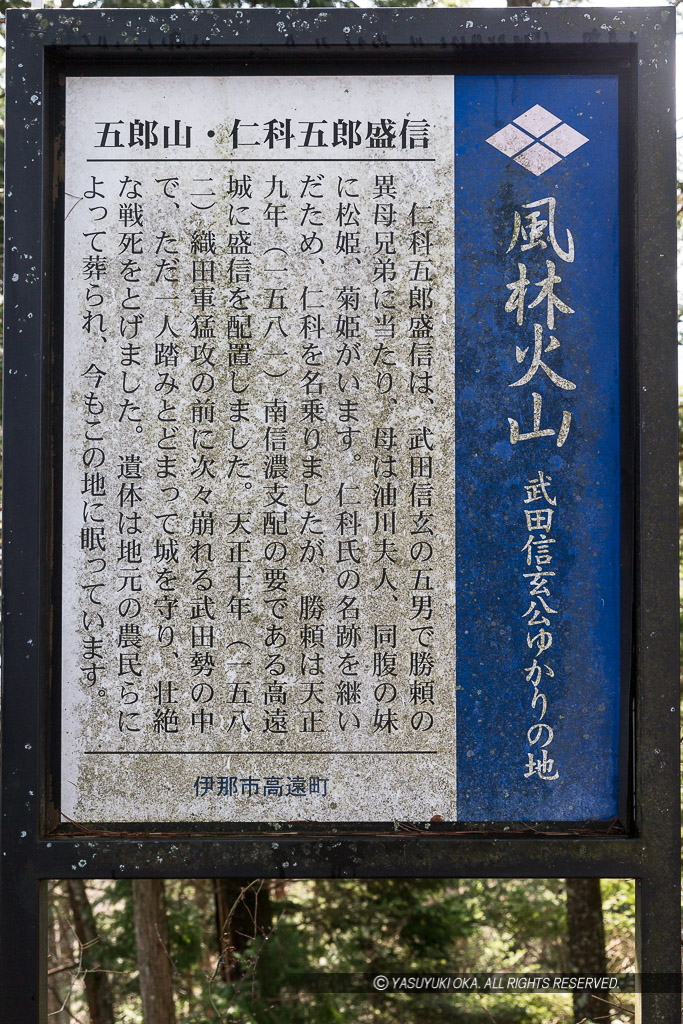 風林火山
武田信玄公ゆかりの地
五郎山・仁科五郎盛信
仁科五郎盛信は、武田信玄の五男で勝頼の
異母兄弟に当たり、母は油川夫人、同腹の妹
に松姫、菊姫がいます。仁科氏の名跡を継い
だため、仁科を名乗りましたが、勝頼は天正
九年（一五八一）南信濃支配の要である高遠
城に盛信を配置しました。天正十年（一五八
二）織田軍猛攻の前に次々崩れる武田勢の中
で、ただ一人踏みとどまって城を守り、壮絶
な戦死をとげました。遺体は地元の農民らに
よって葬られ、今もこの地に眠っています。
伊那市高遠町
© YASUYUKI OKA. ALL RIGHTS RESERVED.